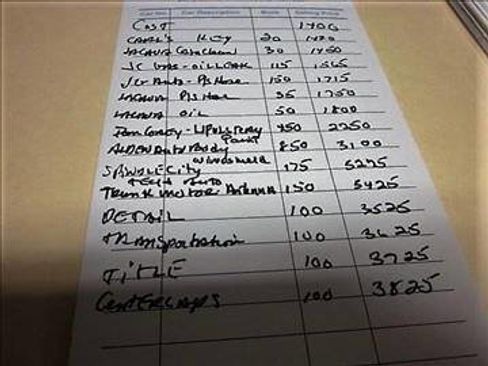 Car No. Car Description Book Selling Price
Cost 1400
CARL'S Key 20 1420
30 1450
JC - OIL LEAK 115 1565
JCV Auto - P/S Hose 150 1715
P/S Hose 35 1750
OIL 50 1800
Tom - UPOLSTERY 450 2250
ALDEN Auto Body Paint 850 3100
SPINDLE City windsheild 175 3275
TECH Auto
TRUNK motor Antenna 150 3425
DETAIL 100 3525
TRANSportation 100 3625
TITLE 100 3725
CenterCaps 100 3825